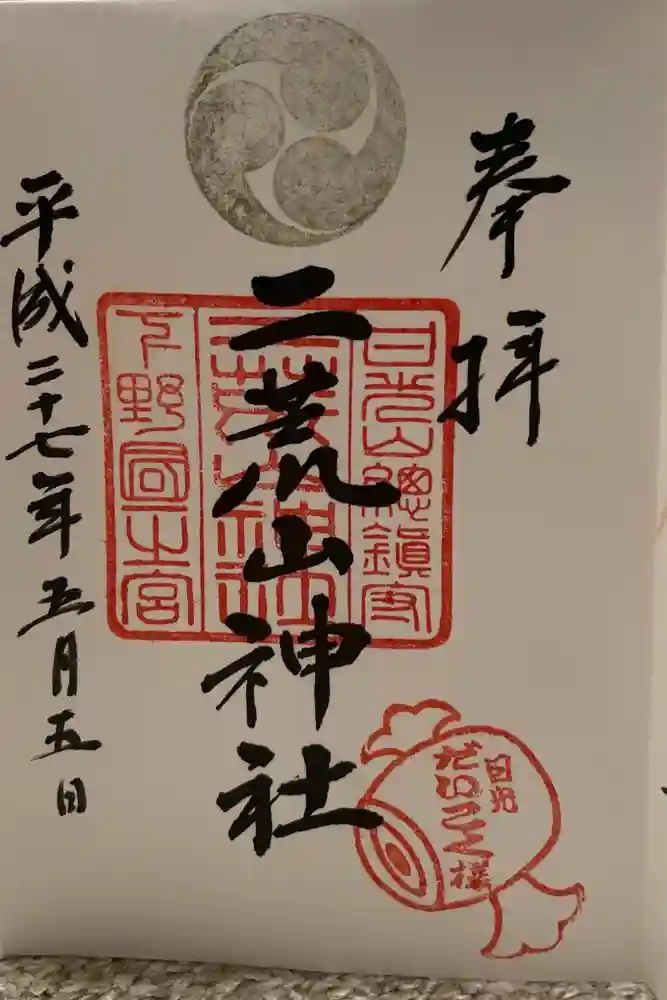 奉拝
日光山總鎮守
二荒山神社
下野國一之宮
二荒山神社
平成二十七年五月五日
日光
だいこく様